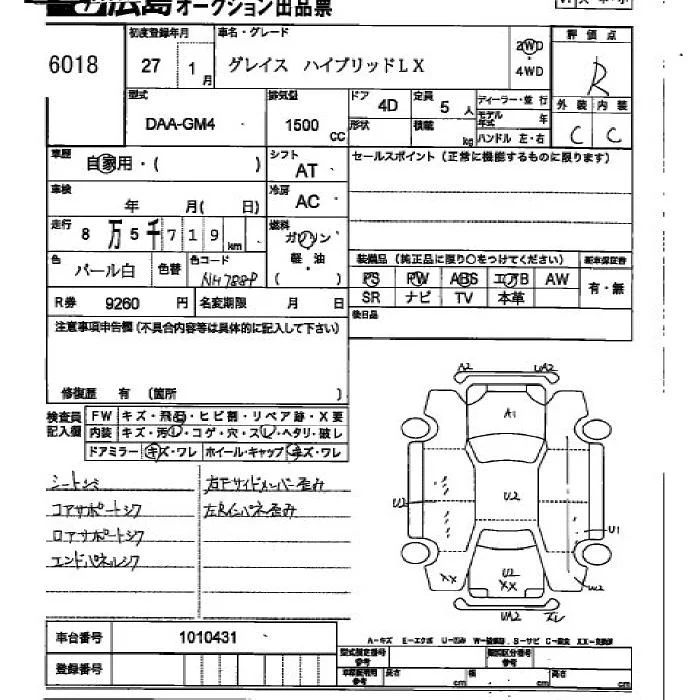 広島オークション出品票
6018
初度登録年月
27 1月
車名・グレード
グレイス ハイブリッドLX
2WD
・
4WD
評価点
R
外装 内装
C C
型式
DAA-GM4
排気量
1500 CC
ドア 4D
定員 5人
形状
積載 kg
ディーラー・並行
モデル年式 年
ハンドル 左・右
車歴
自家用・( )
シフト
AT
セールスポイント(正常に機能するものに限ります)
車検
年 月( 日)
冷房
AC
走行
8万5千719km
燃料
ガソリン
・
軽油
・
( )
色
パール白
色替
色コード
NH788P
装備品(純正品に限り○をつけてください)
新車保証書
PS PW ABS エアB AW
SR ナビ TV 本革
有・無
R券 9260円
名変期限 月 日
後日品
注意事項申告欄(不具合内容等は具体的に記入して下さい)
修復歴 有 (箇所 )
検査員記入欄
FW キズ・飛石・ヒビ割・リペア跡・X要
内装 キズ・汚レ・コゲ・穴・スレ・ヘタリ・破レ
ドアミラー キズ・ワレ ホイール・キャップ キズ・ワレ
シートシミ
コアサポートシワ
ロアサポートシワ
エンドパネルシワ
右下サイドメンバー歪み
A2
A1
U2
U2
U1
XX
U2
XX
W2
UA2
A-キズ E-エクボ U-凹み W-補修跡 S-サビ C-腐食 XX-交換跡
車台番号 1010431
登録番号
型式指定番号
参考
類別区分番号
参考
車庫証明用
参考
長さ cm
幅 cm
高さ cm